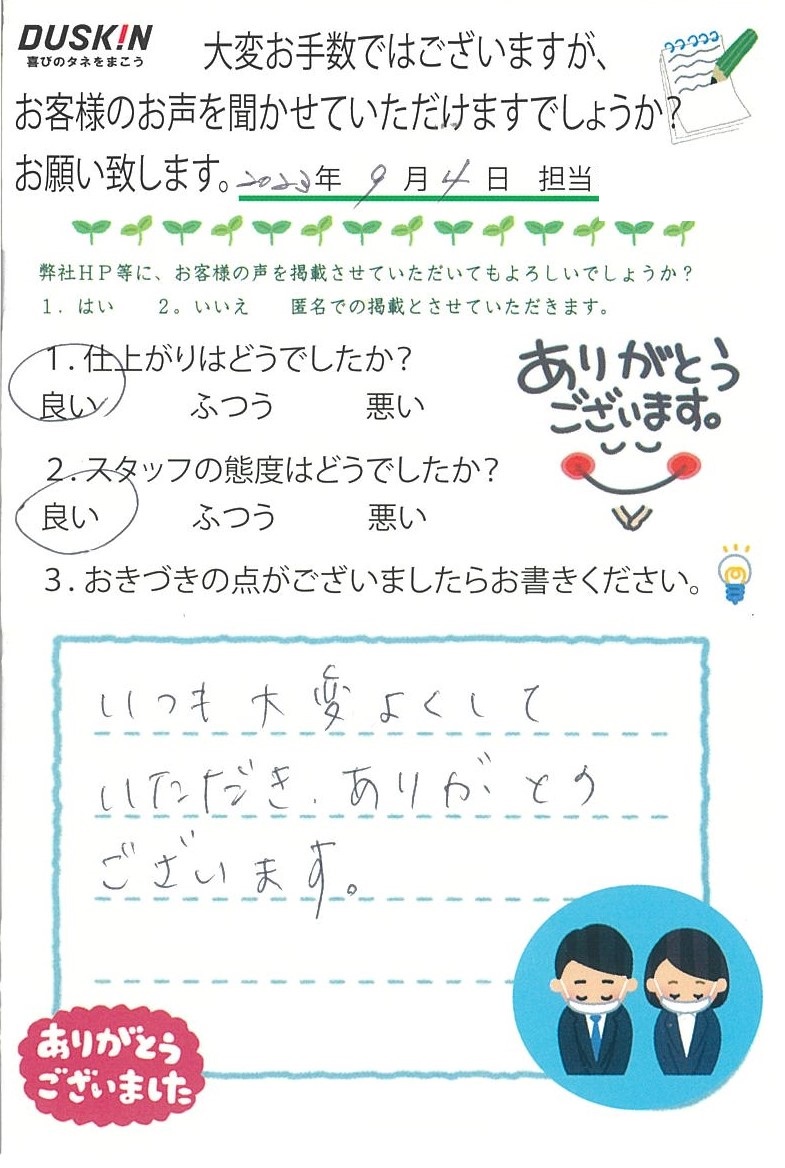 DUSK!N
喜びのタネをまこう
大変お手数ではございますが、
お客様のお声を聞かせていただけますでしょうか？
お願い致します。2023年 9月4日 担当
弊社HP等に、お客様の声を掲載させていただいてもよろしいでしょうか？
1．はい　2。いいえ　匿名での掲載とさせていただきます。
1．仕上がりはどうでしたか？
良い　ふつう　悪い
ありがとう
ございます。
2．スタッフの態度はどうでしたか？
良い　ふつう　悪い
3．おきづきの点がございましたらお書きください。
いつも大変よくして
いただき、ありがとう
ございます。
ありがとう
ございました